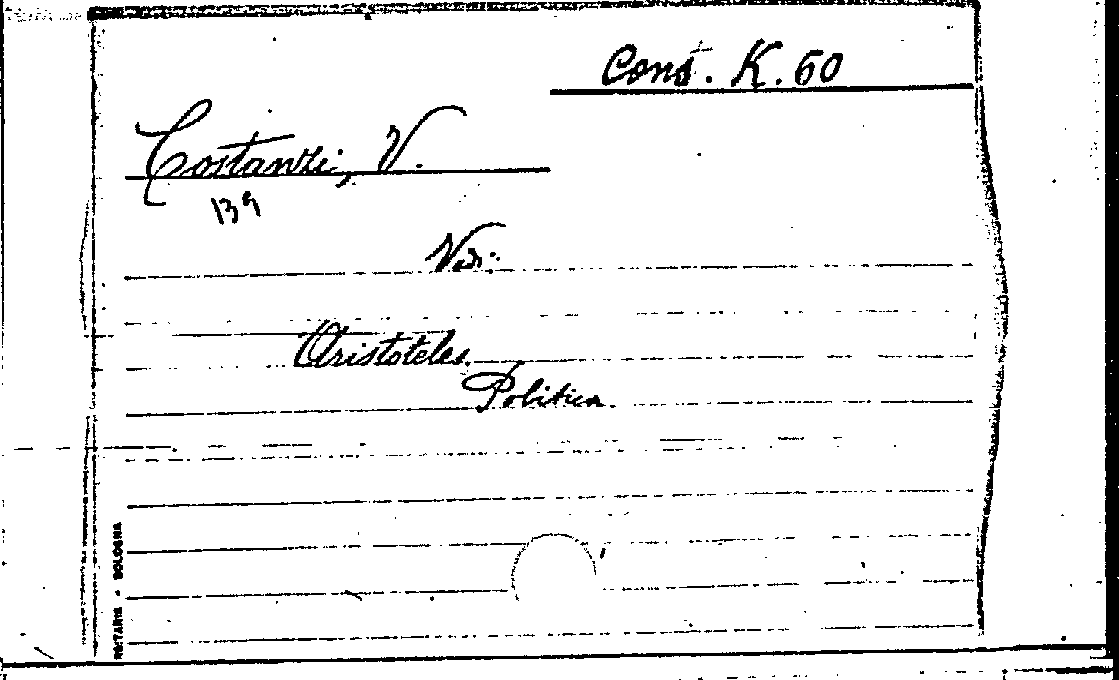 Cons. K. 60
Costanzi, V.
139
Ved:
Aristoteles
Politica.
BOLOGNA